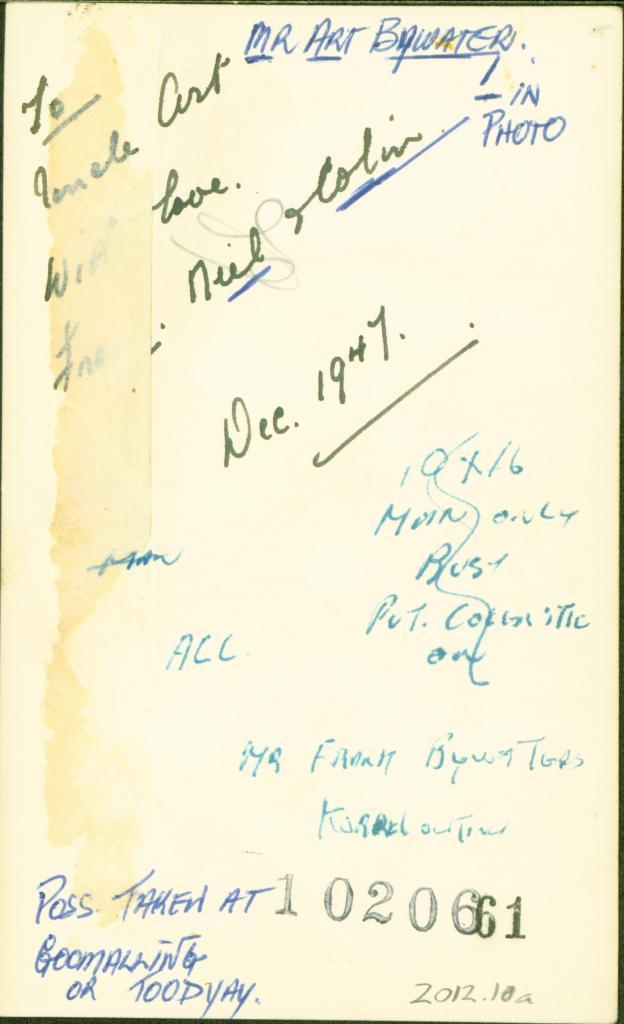 MR ART BYWATER.
1 IN
PHOTO
To
Uncle Art
With love.
From Neil & Colin
Dec. 1947.
10 x 16
MAN ONLY
BUST
PUT. COLLAR &TIE
ON
MAN
ALL
MR FRANK BYWATERS
POSS. TAKEN AT
GOOMALLING
OR TOODYAY.
1020661
2012.10a